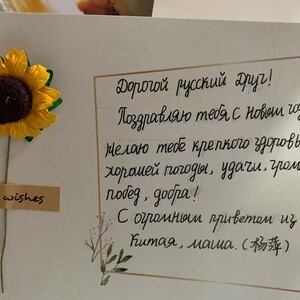 Дорогой русский друг!
Поздравляю тебя с новым го
Желаю тебе крепкого здоровь
хорошей погоды, удачи, гром
побед, добра!
wishes
С огромным приветом из
Китая, маша. (杨萍)